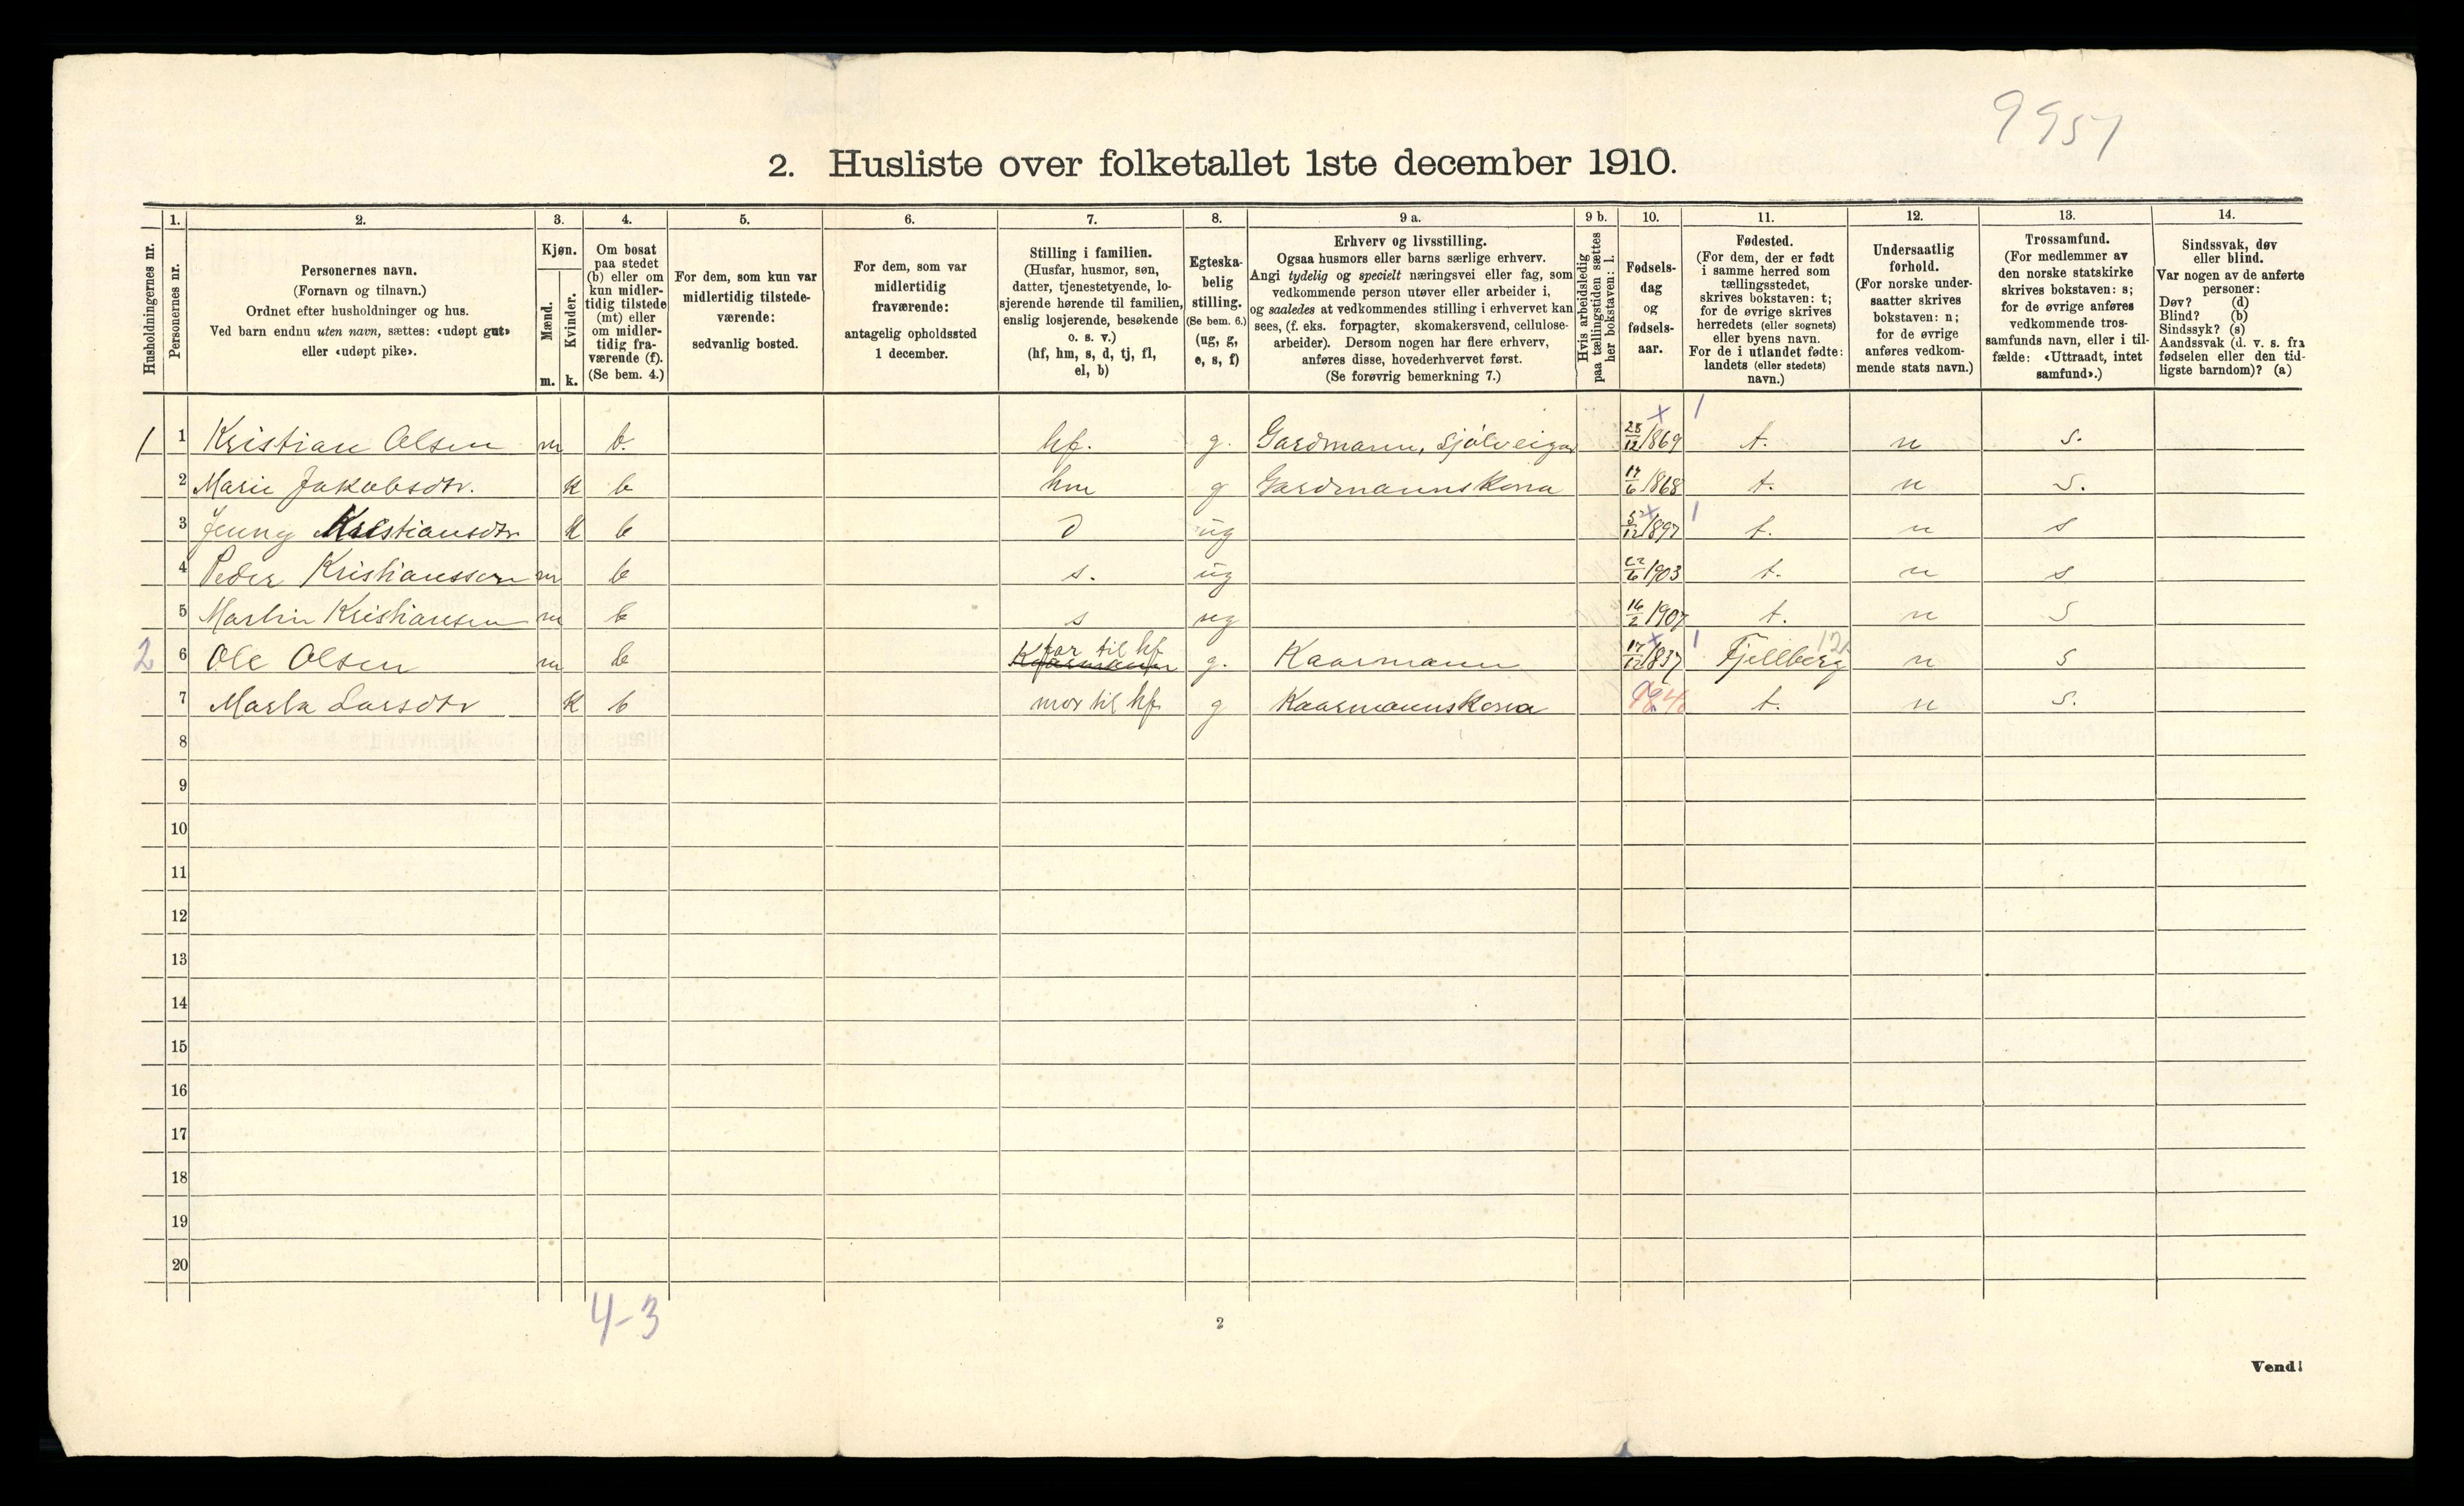 9951
2. Husliste over folketallet 1ste december 1910.
Husholdningernes nr.
1. Personernes nr.
2. Personernes navn. (Fornavn og tilnavn.) Ordnet efter husholdninger og hus. Ved barn endnu uten navn, sættes: «udøpt gut» eller «udøpt pike».
3. Kjøn. Mænd. m. Kvinder. k.
4. Om bosat paa stedet (b) eller om kun midlertidig tilstede (mt) eller om midlertidig fraværende (f). (Se bem. 4.)
5. For dem, som kun var midlertidig tilstedeværende: sedvanlig bosted.
6. For dem, som var midlertidig fraværende: antagelig opholdssted 1 december.
7. Stilling i familien. (Husfar, husmor, søn, datter, tjenestetyende, losjerende hørende til familien, enslig losjerende, besøkende o. s. v.) (hf, hm, s, d, tj, fl, el, b)
8. Egteskabelig stilling. (Se bem. 6.) (ug, g, e, s, f)
9 a. Erhverv og livsstilling. Ogsaa husmors eller barns særlige erhverv. Angi tydelig og specielt næringsvei eller fag, som vedkommende person utøver eller arbeider i, og saaledes at vedkommendes stilling i erhvervet kan sees, (f. eks. forpagter, skomakersvend, cellulosearbeider). Dersom nogen har flere erhverv, anføres disse, hovederhvervet først. (Se forøvrig bemerkning 7.)
9 b. Hvis arbeidsledig paa tællingstiden sættes her bokstaven: l.
10. Fødselsdag og fødselsaar.
11. Fødested. (For dem, der er født i samme herred som tællingsstedet, skrives bokstaven: t; for de øvrige skrives herredets (eller sognets) eller byens navn. For de i utlandet fødte: landets (eller stedets) navn.)
12. Undersaatlig forhold. (For norske undersaatter skrives bokstaven: n; for de øvrige anføres vedkommende stats navn.)
13. Trossamfund. (For medlemmer av den norske statskirke skrives bokstaven: s; for de øvrige anføres vedkommende trossamfunds navn, eller i tilfælde: «Uttraadt, intet samfund».)
14. Sindssvak, døv eller blind. Var nogen av de anførte personer: Døv? (d) Blind? (b) Sindssyk? (s) Aandssvak (d. v. s. fra fødselen eller den tidligste barndom)? (a)
1 1 Kristian Olsen m b. hf. g. Gardmann, Sjølveigar 25/12 1869 t. n s.
2 Marie Jakobsdtr. k b hm g Gardmannskona 17/6 1868 t. n s.
3 Jenny Kristiansdtr k b d ug 5/12 1897 t. n s
4 Peder Kristianssen m b s. ug 22/6 1903 t. n s
5 Martin Kristiansen m b s ug 16/2 1907 t. n s
2 6 Ole Olsen m b far til hf g. Kaarmann 17/12 1837 Fjellberg n s
7 Marta Larsdtr k b mor til hf g Kaarmannskona t. n s.
8
9
10
11
12
13
14
15
16
17
18
19
20
4-3
2
Vend!